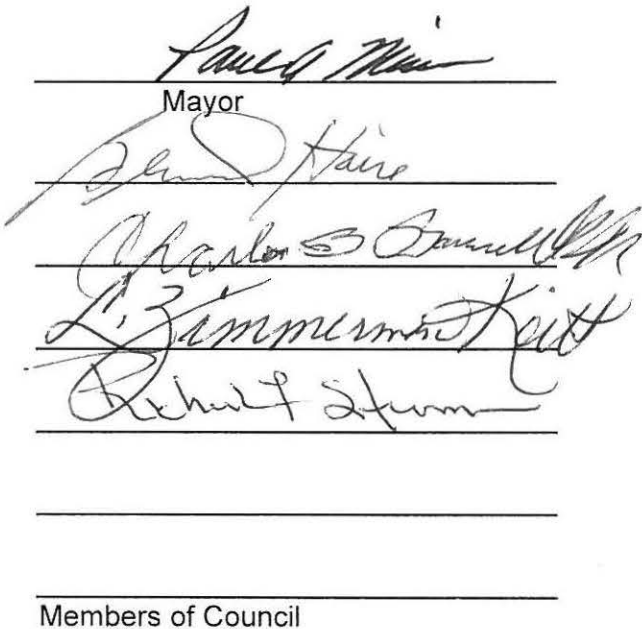 Paul A Mi
Mayor
Haire
Charles B
L. Zimmerman Keitt
Richard F Stroman
Members of Council